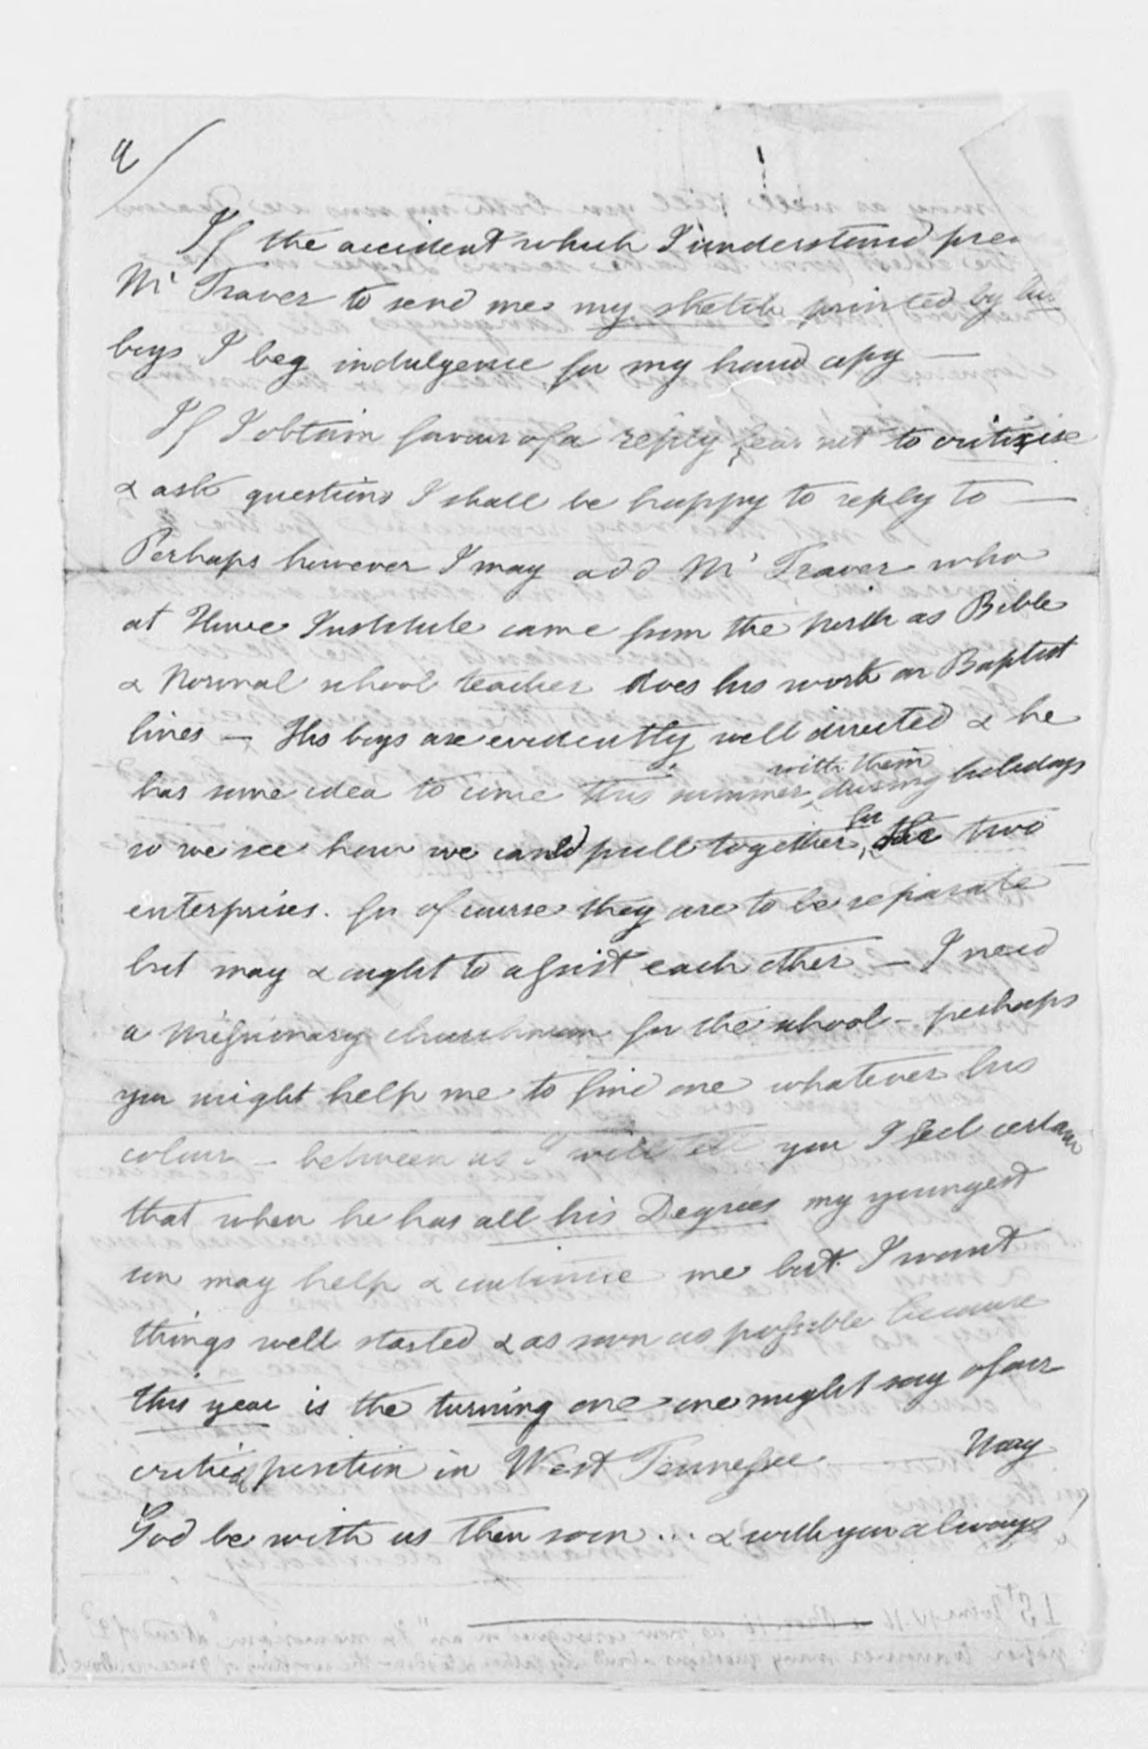 If the accident which I understand pre
Mr Traver to send me my sketch printed by his
boys I beg indulgence for my hand copy —
If I obtain favour of a reply fear not to criticise
& ask questions I shall be happy to reply to —
Perhaps however I may add Mr Traver who
at Howe Institute came from the North as Bible
& Normal school teacher does his work on Baptist
lines — His boys are evidently well directed & he
has some idea to come this summer with them during holidays
so we see how we could pull together for the two
enterprises. for of course they are to be separate —
but may & ought to assist each other — I need
a Missionary churchman for the school — perhaps
you might help me to find one whatever his
colour — between us I will tell you I feel certain
that when he has all his Degrees my youngest
son may help & continue me but I want
things well started & as soon as possible because
this year is the turning one one might say of our
critical position in West Tennessee — May
God be with us then soon ... & with you always!